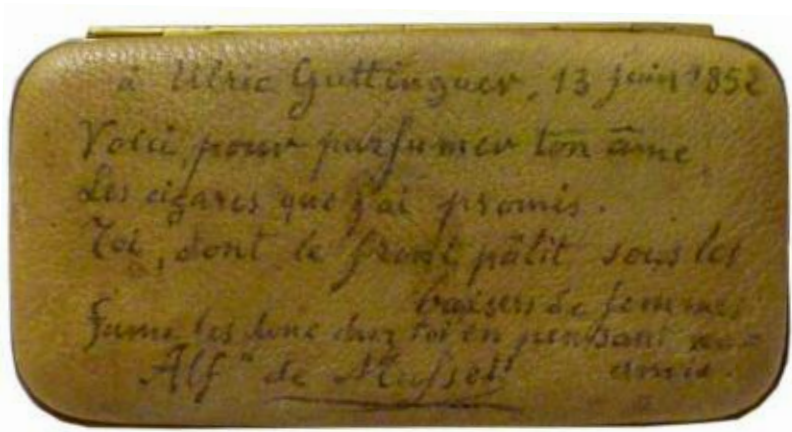 à Ulric Guttinguer, 13 juin 1852
Voici, pour parfumer ton âme,
Les cigares que j'ai promis.
Toi, dont le front pâlit sous les
baisers de femmes
Fume les donc chez toi en pensant aux
amis.
Alf de Musset